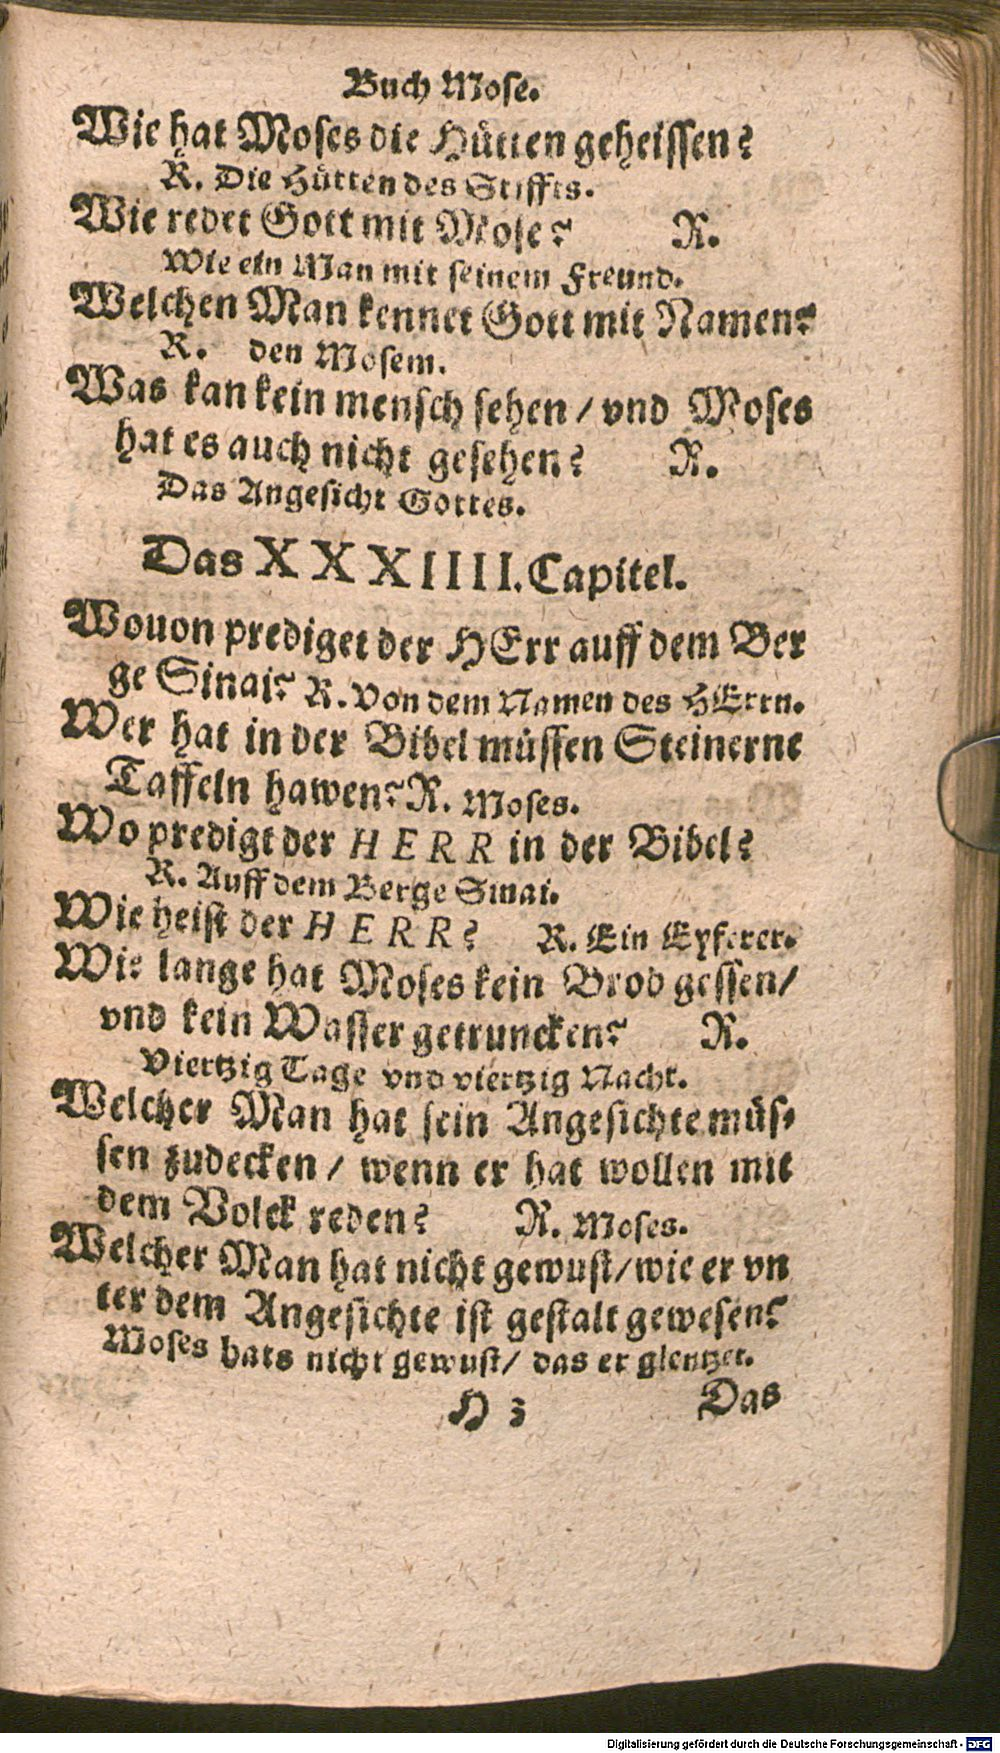 Buch Mose.
Wie hat Moses die Hütten geheissen?
R. Die Hütten des Stiffts.
Wie redet Gott mit Mose? R.
Wie ein Man mit seinem Freund.
Welchen Man kennet Gott mit Namen?
R. den Mosem.
Was kan kein mensch sehen / vnd Moses
hat es auch nicht gesehen? R.
Das Angesicht Gottes.
Das XXXIIII. Capitel.
Wouon prediget der HErr auff dem Ber
ge Sinai? R. Von dem Namen des HErrn.
Wer hat in der Bibel müssen Steinerne
Taffeln hawen? R. Moses.
Wo predigt der HERR in der Bibel?
R. Auff dem Berge Sinai.
Wie heist der HERR? R. Ein Eyferer.
Wie lange hat Moses kein Brod gessen /
vnd kein Wasser getruncken? R.
Viertzig Tage vnd viertzig Nacht.
Welcher Man hat sein Angesichte müs-
sen zudecken / wenn er hat wollen mit
dem Volck reden? R. Moses.
Welcher Man hat nicht gewust / wie er vn
ter dem Angesichte ist gestalt gewesen?
Moses hats nicht gewust / das er glentzet.
H 3 Das
Digitalisierung gefördert durch die Deutsche Forschungsgemeinschaft - DFG